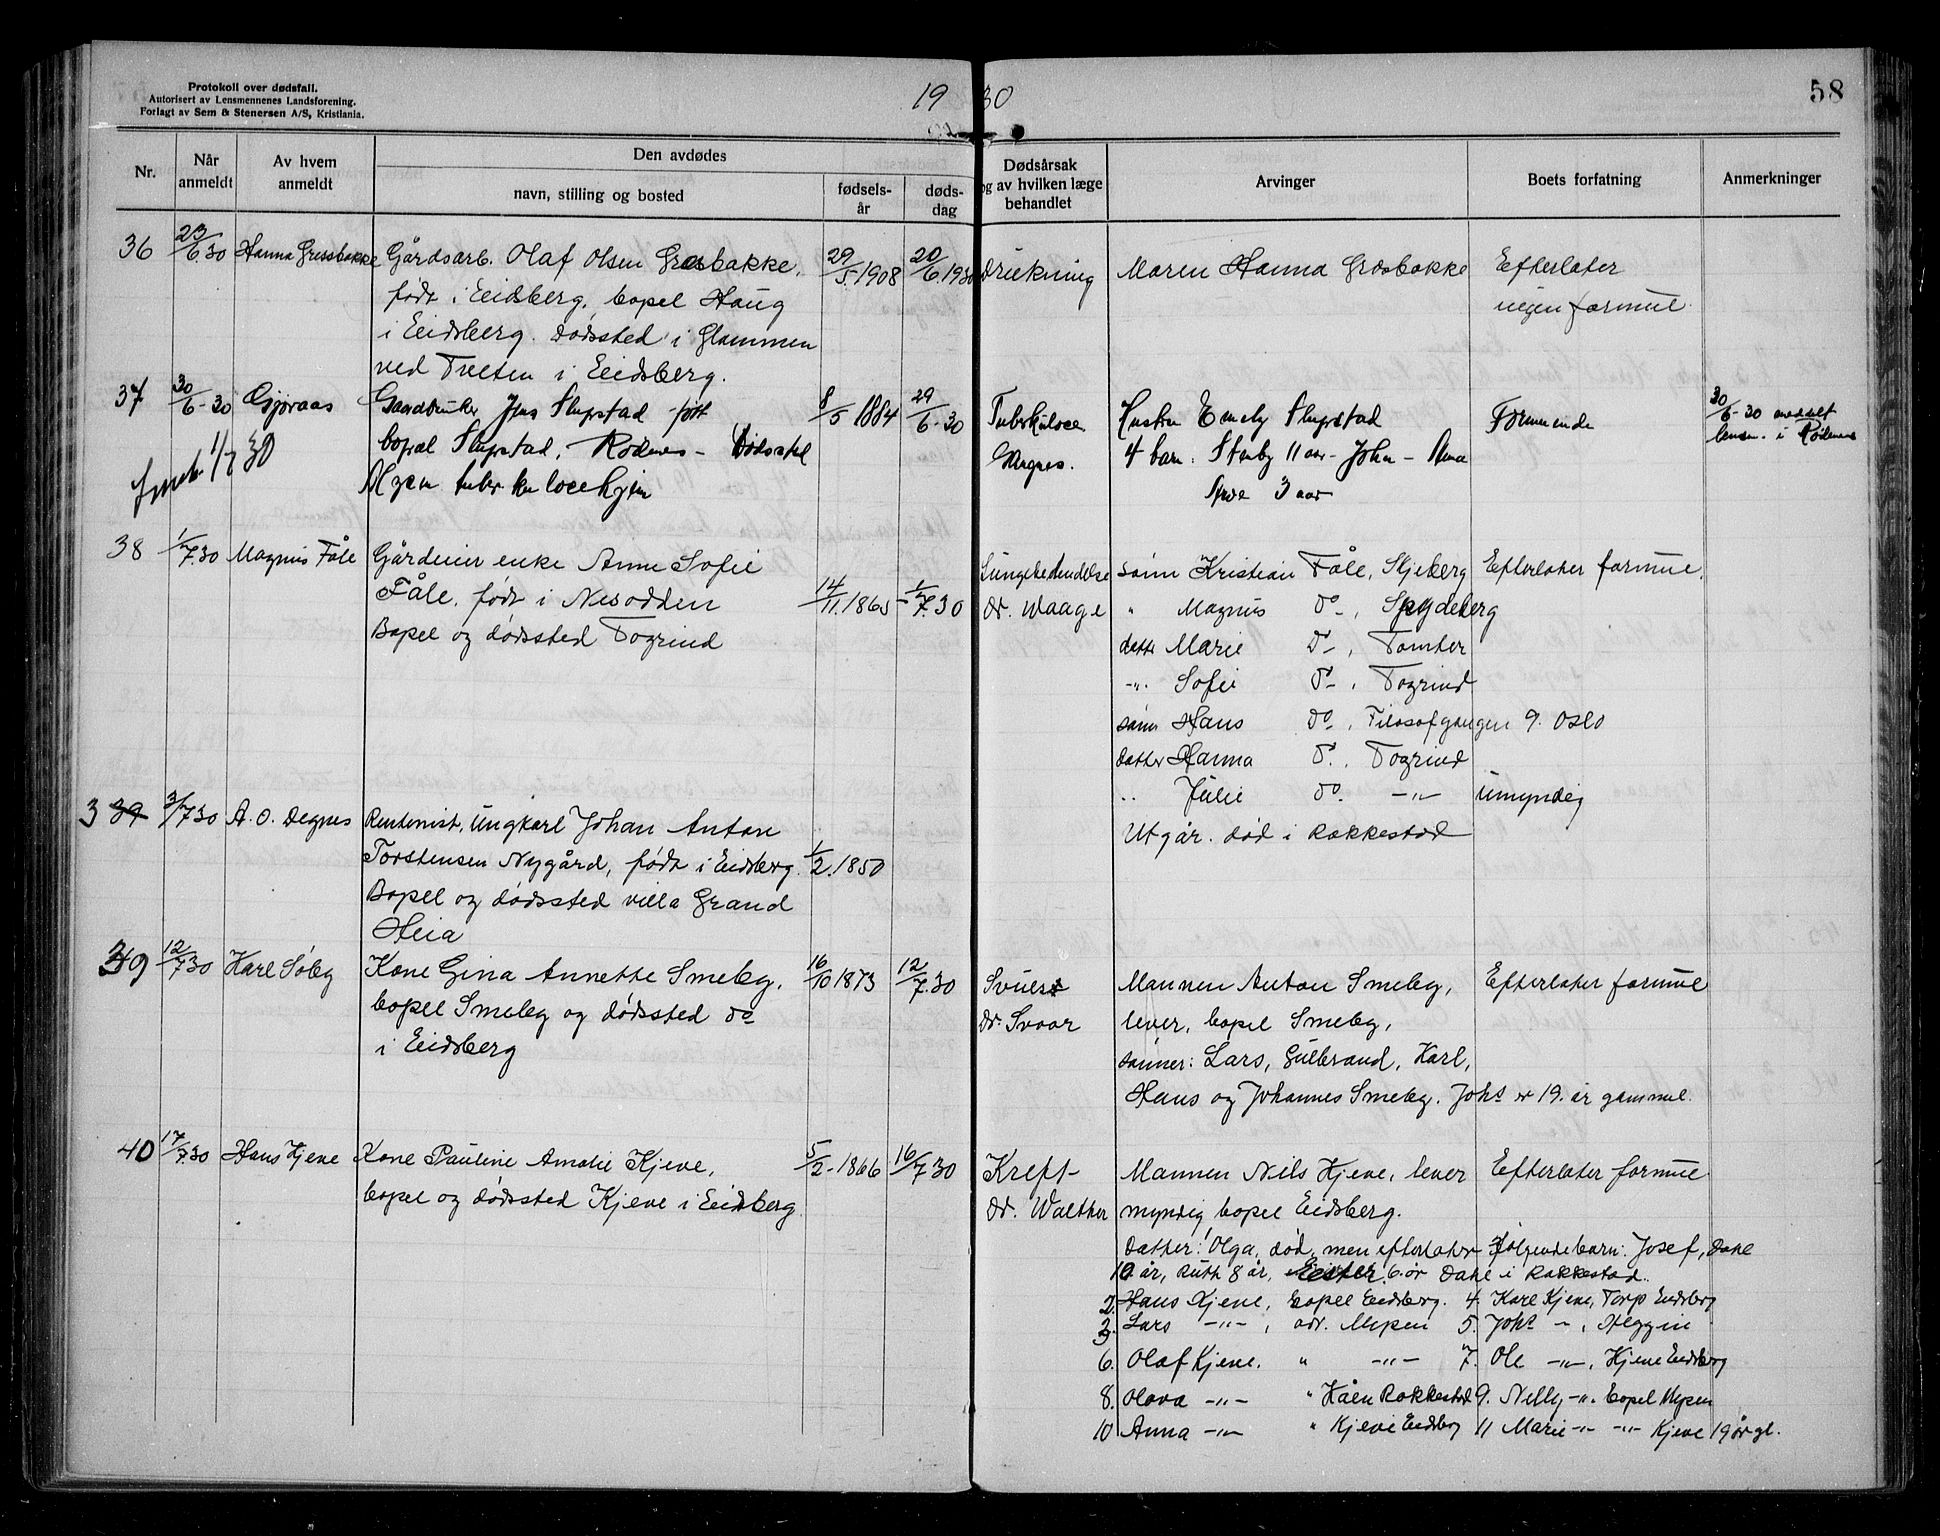 Protokoll over dødsfall.
Autorisert av Lensmennenes Landsforening.
Forlagt av Sem & Stenersen A/S, Kristiania.
19 30
58
Nr.
Når anmeldt
Av hvem anmeldt
Den avdødes
navn, stilling og bosted
fødsels-år
døds-dag
Dødsårsak og av hvilken læge behandlet
Arvinger
Boets forfatning
Anmerkninger
36 23/6.30 Hanna Gressbakke Gårdsarb. Olaf Olsen Græsbakke, 29/5.1908 20/6.1930 Drukning Maren Hanna Græsbakke Efterlater
født i Eidsberg, bopel Haug ingen formue.
i Eidsberg. Dødssted i Glommen
ved Tveten i Eidsberg.
37 30/6-30 Gjøraas Gaardbruker Jens Slupstad født 8/5 1884 29/6-30 Tuberkulose Hustru Emely Slupstad Formuende 30/6-30 meddelt
bopæl Slupstad, Rødenes - Dødssted 4 barn: 11 aar - John - lensm. i Rødenes
1/7 30 Mysen tuberkulosehjem 3 aar
38 1/7.30 Magnus Fåle Gårdeier enke Anne Sofie Lungebetendelse sønn Kristian Fåle, Skjeberg Efterlater formue.
Fåle, født i Nesodden 14/11.1865 1/7.30 Dr. Waage " Magnus do-, Spydeberg
Bopel og dødssted Togrind datter Marie do-, Tomter
-"- Sofie do-, Togrind
sønn Hans do-, Filosofgangen 9. Oslo
datter Hanna do., Togrind
" Julie do. -"- umyndig
3 39 3/7 30 A. O. Degnes Rentenist, Ungkarl Johan Anton Utgår. død i Rakkestad
Torstensen Nygård, født i Eidsberg. 1/2.1850
Bopel og dødssted villa Grand
Heia
39 12/7 30 Karl Søby Kone Gina Annette Smeby, 16/10 1873 12/7.30 Svulst Mannen Anton Smeby, Efterlater formue
bopel Smeby og dødssted do Dr. Svaar lever, bopel Smeby,
i Eidsberg sønner: Lars, Gulbrand, Karl,
Hans og Johannes Smeby. Johs er 19. år gammel.
40 17/7.30 Hans Kjeve Kone Pauline Amalie Kjeve, 5/2-1866 16/7 30 Kreft- Mannen Nils Kjeve, lever Efterlater formue
bopel og dødssted Kjeve i Eidsberg. Dr. Walther myndig bopel Eidsberg.
Datter: Olga, død, men efterlater følgende barn: Josef, Dahl
10 år, Ruth 8 år, Ester 6. år Dahl i Rakkestad.
2. Hans Kjeve, bopel Eidsberg. 4. Karl Kjeve, Torp Eidsberg
3. Lars -"-, adr. Mysen 5. Johs -"-, Heggin
6. Olaf Kjeve. " -"- 7. Ole -"-, Kjeve Eidsberg
8. Olava -"- " Håen Rakkestad 9. Nelly -"- bopel Mysen
10 Anna -"- " Kjeve Eidsberg 11 Marie -"- -"- Kjeve 19 år gl.